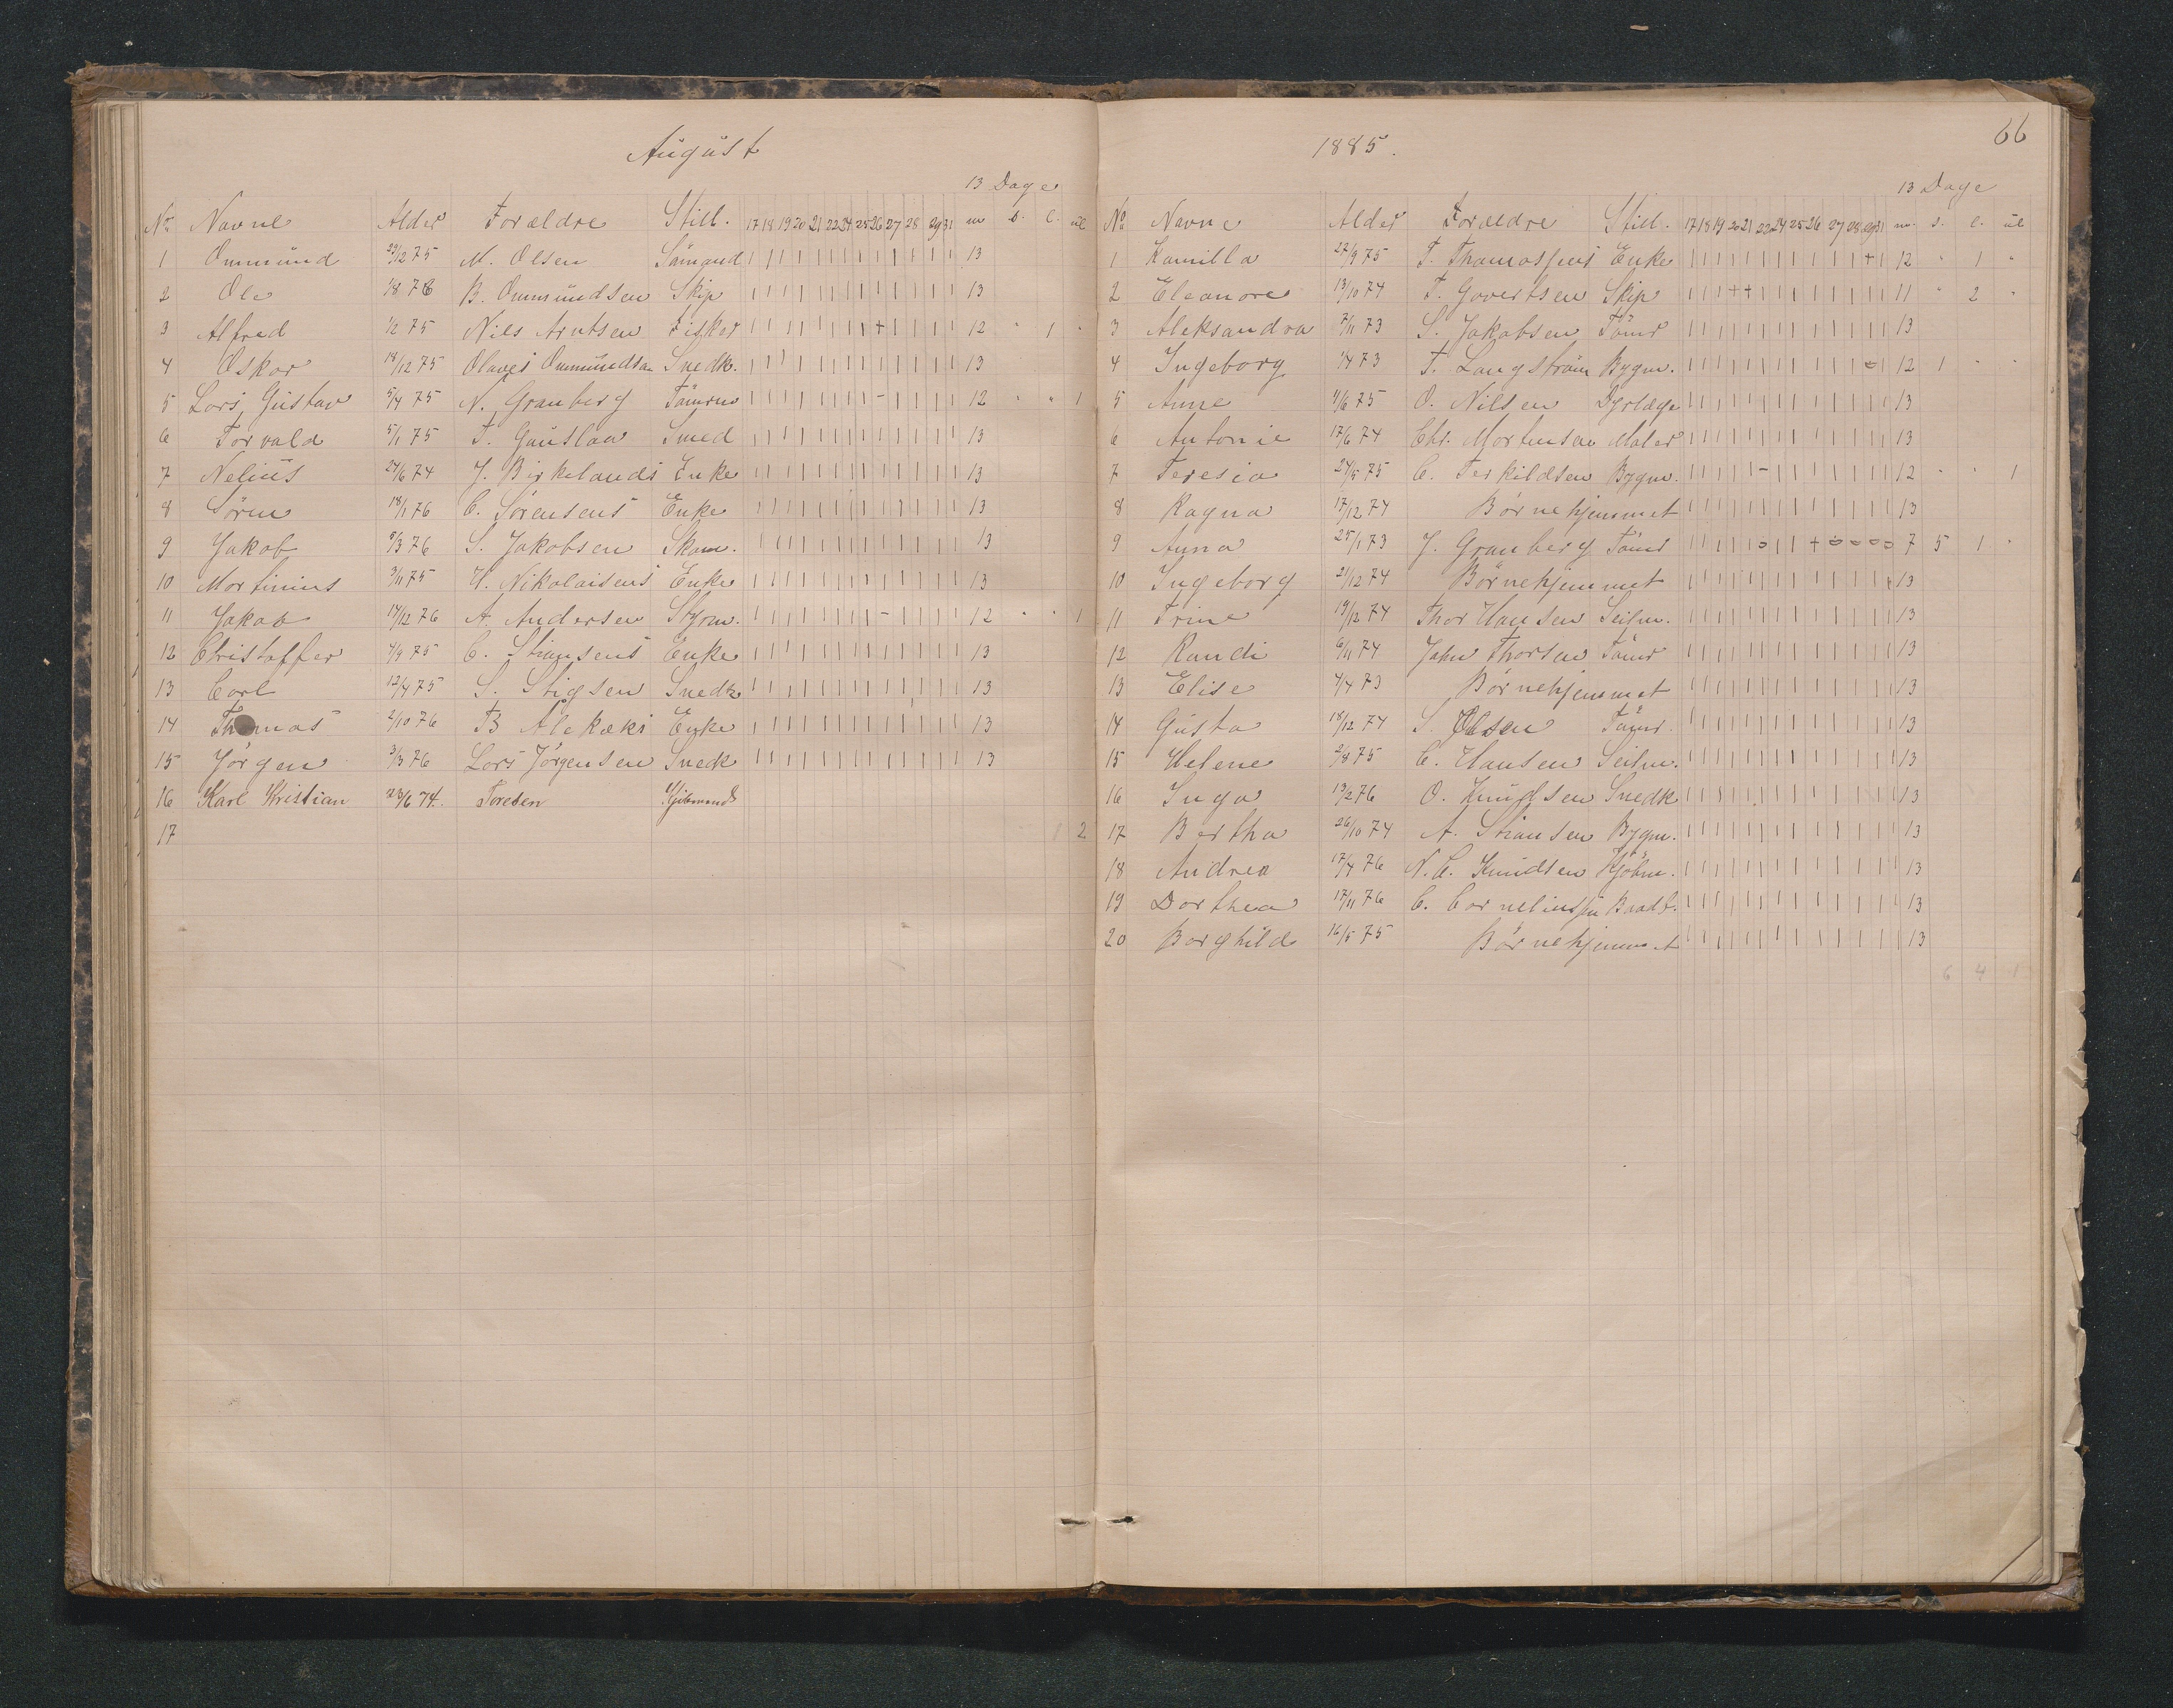 August
13 Dage
No Navne Alder Forældre Still. 17 18 19 20 21 22 24 25 26 27 28 29 31 m s. l. ul
1 Ommund 23/12 75 M. Olsen Sömand | | | | | | | | | | | | | 13
2 Ole 1/8 76 B. Ommundsen Skip | | | | | | | | | | | | | 13
3 Alfred 1/2 75 Nils Arntsen Fisker | | | | | | | | + | | | | 12 " 1 "
4 Oskar 18/12 75 Olaves Ommundsen Snedk. | | | | | | | | | | | | | 13
5 Lars, Gustav 5/4 75 N. Granberg Tömrm | | | | | | | | - | | | | 12 " " 1
6 Torvald 5/1 75 T. Gauslaa Smed | | | | | | | | | | | | | 13
7 Nelius 24/6 74 J. Birkelands Enke | | | | | | | | | | | | | 13
8 Sören 18/1 76 C. Sörensens Enke | | | | | | | | | | | | | 13
9 Jakob 8/3 76 S. Jakobsen Skom. | | | | | | | | | | | | | 13
10 Martinius 3/11 75 H. Nikolaisens Enke | | | | | | | | | | | | | 13
11 Jakob 14/12 76 A. Andersen Styrm. | | | | | | | | - | | | | 12 " " 1
12 Christoffer 4/9 75 C. Stiansens Enke | | | | | | | | | | | | | 13
13 Carl 12/4 75 S. Stigsen Snedk | | | | | | | | | | | | | 13
14 Thomas 2/10 76 B Enke | | | | | | | | | | | | | 13
15 Jörgen 3/3 76 Lars Jörgensen Snedk | | | | | | | | | | | | | 13
16 Karl Kristian 23/6 74. Toresen
17 1 2
1885.
66
13 Dage
No Navne Alder Forældre Still. 17 18 19 20 21 22 24 25 26 27 28 29 31 m. s. l. ul
1 Kamilla 27/9 75 T. Thomassens Enke | | | | | | | | | | | + | 12 " 1 "
2 Eleanore 13/10 74 T. Govertsen Skip | | | + + | | | | | | | | 11 " 2 "
3 Aleksandra 7/11 73 S. Jakobsen Tömr | | | | | | | | | | | | | 13
4 Ingeborg 1/4 73 F. Langström Bygm. | | | | | | | | | | | o | 12 1 " "
5 Anne 4/6 75 O. Nilsen Dyrlæge | | | | | | | | | | | | | 13
6 Antonie 17/6 74 Chr. Mortensen Maler | | | | | | | | | | | | | 13
7 Teresia 24/5 75 C. Terkildsen Bygm. | | | | | - | | | | | | | 12 " " 1
8 Ragna 17/12 74 Börnehjemmet | | | | | | | | | | | | | 13
9 Anna 25/1 73 J. Granberg Tömr | | | | o | | + o o o o 7 5 1 "
10 Ingeborg 21/12 74 Börnehjemmet | | | | | | | | | | | | | 13
11 Trine 19/12 74 Thor Hansen Seilm. | | | | | | | | | | | | | 13
12 Randi 6/11 74 John Thorsen Tömr | | | | | | | | | | | | | 13
13 Elise 4/4 73 Börnehjemmet | | | | | | | | | | | | | 13
14 Gusta 18/12 74 S. Olsen Tömr. | | | | | | | | | | | | | 13
15 Helene 2/8 75 C. Hansen Seilm. | | | | | | | | | | | | | 13
16 Inga 13/2 76 O. Knudsen Snedk | | | | | | | | | | | | | 13
17 Bertha 26/10 74 A. Stiansen Bygm. | | | | | | | | | | | | | 13
18 Andrea 17/4 76 N. C. Knudsen Kjöbm. | | | | | | | | | | | | | 13
19 Dorthea 17/11 76 C. Corneliussen Baadb. | | | | | | | | | | | | | 13
20 Borghild 16/5 75 Börnehjemmet | | | | | | | | | | | | | 13
6 4 1